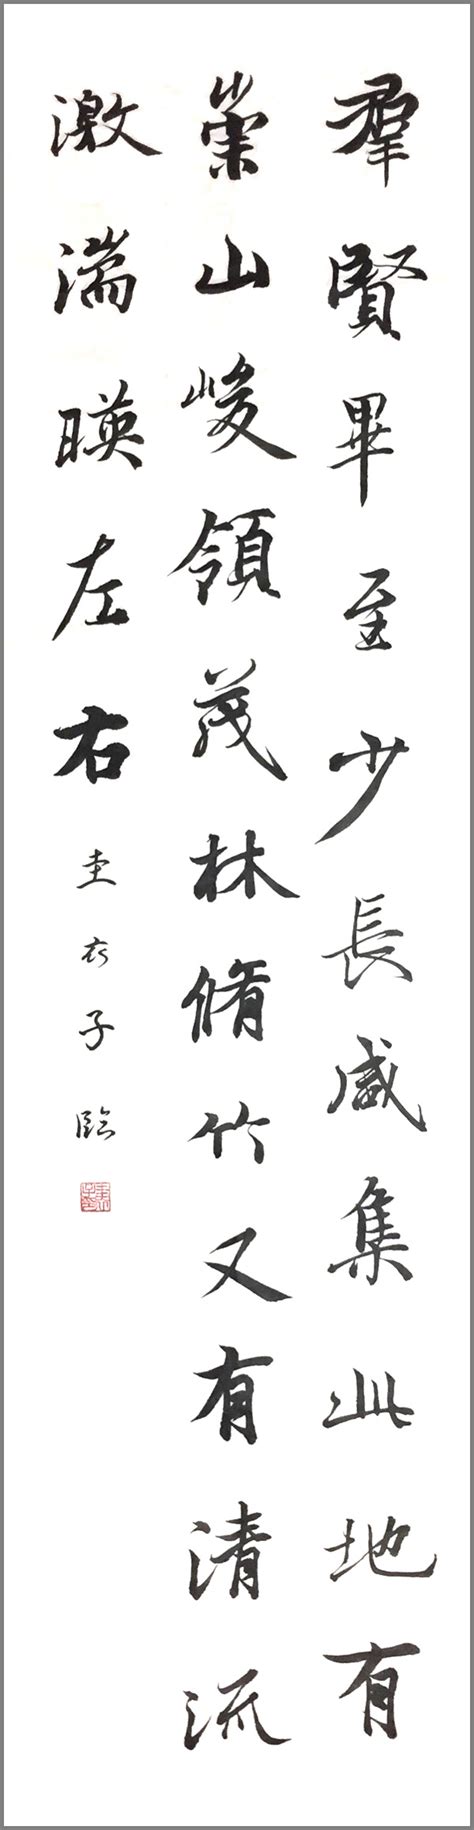 羣賢畢至少長咸集此地有
崇山峻領茂林脩竹又有清流
激湍暎左右
子臨